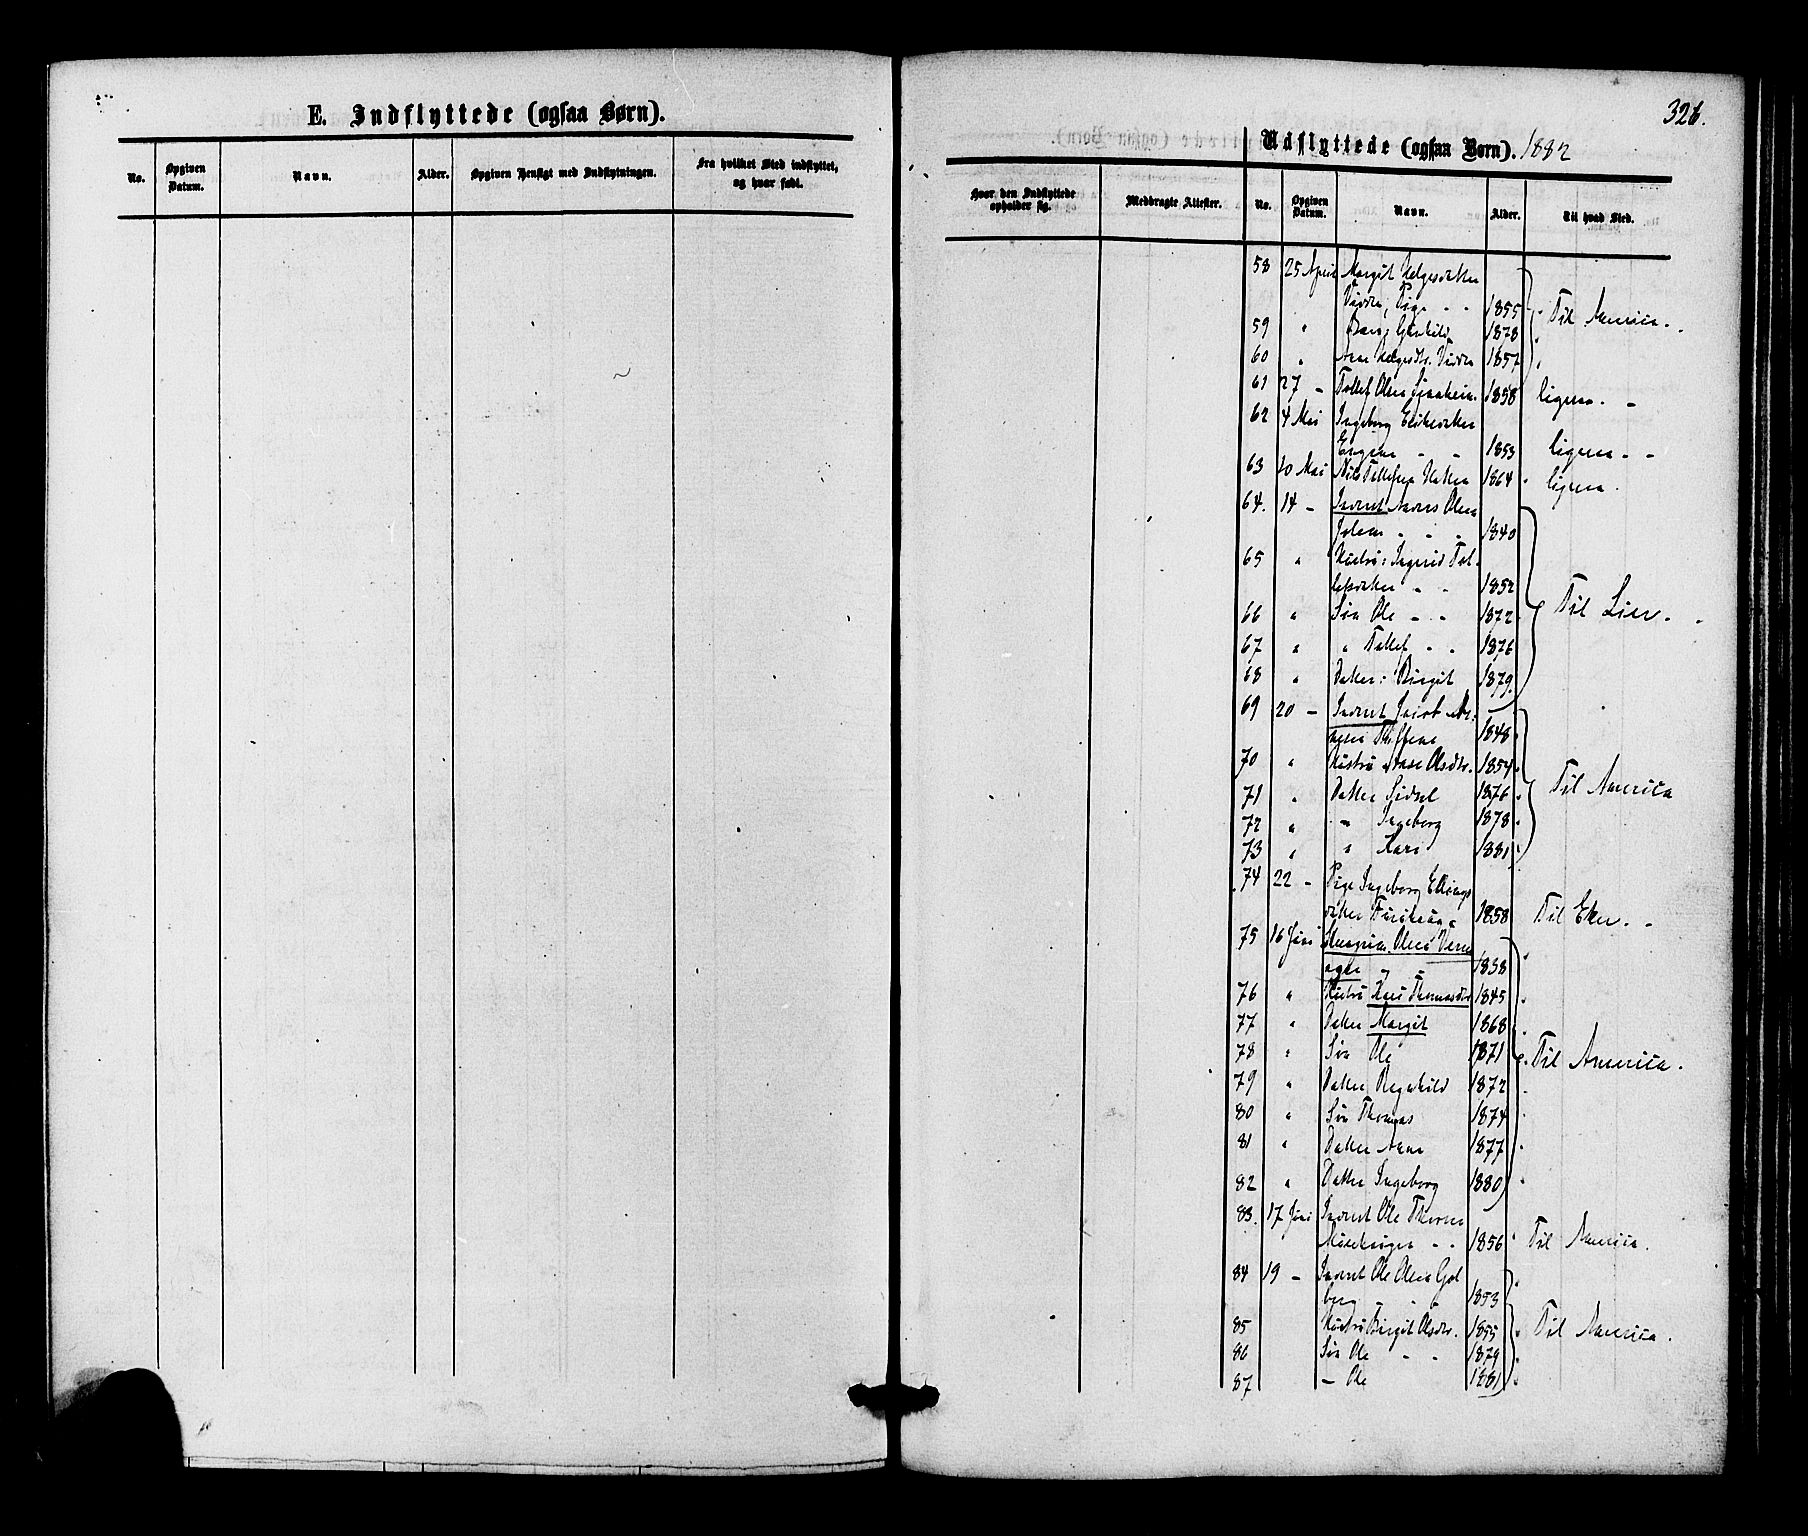 E. Indflyttede (ogsaa Børn).
No. Opgiven Datum. Navn. Alder. Opgiven Hensigt med Indflytningen. Fra hvilket Sted indflyttet, og hvor født.
326.
Udflyttede (ogsaa Børn). 1882
Hvor den Indflyttede opholder sig. Medbragte Attester. No. Opgiven Datum. Navn. Alder. Til hvad Sted.
58 25 April Margit Helgesdatter
Pige - - 1855 Til America.
59 " Gunhild 1878
60 " Helgesdtr. 1857
61 27 - Tollef Olsen 1858 ligesaa. -
62 4 Mai Ingeborg
1853 ligesaa - -
63 10 Mai Nils Tollefsen 1864 ligesaa.
64. 14 - Inderst Olsen
- - - 1840
65 " Hustru: Ingrid Tol-
lefsdatter - - 1852
66 " Søn Ole - - 1872 Til Lier.
67 " " Tollef - - 1876
68 " Datter: Birgit 1879.
69 20 - Inderst Jacob
1848
70 " Hustru Aase Olsdtr. 1854
71 " Datter Sidsel 1876 Til America
72 " " Ingeborg 1878
73 " " Kari 1881
74 22 - Pige Ingeborg Ellings
datter 1858 Til Eker. -
75 16 Juni Olsen
1838
76 " Hustru Kari Thomasdtr 1845
77 " Datter Margit 1868
78 " Søn Ole 1871 Til America.
79 " Datter Ragnhild 1872
80 " Søn Thomas 1874
81 " Datter Anne 1877
82 " Datter Ingeborg 1880
83. 17 Juni Inderst Ole
- - 1856 Til America.
84 19 - Inderst Ole Olsen Gol
berg - - 1853
85 Hustru Birgit Olsdtr. 1855 Til America.
86 Søn Ole - - 1879
87 - Ole 1881